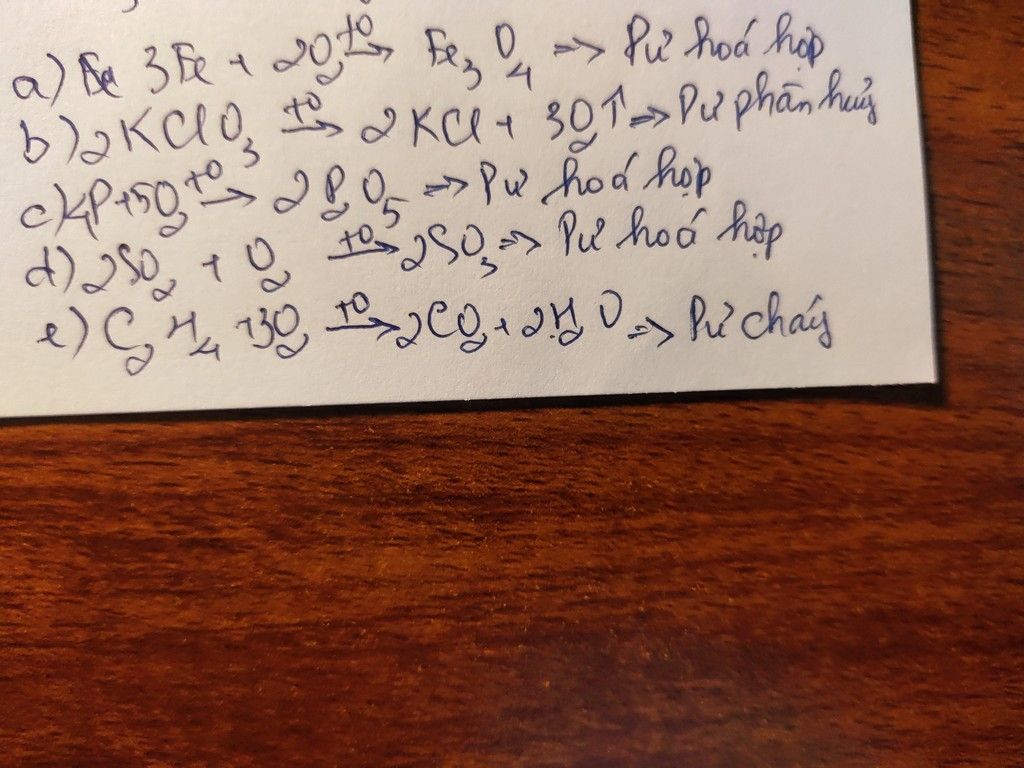 a) 3Fe + 2O₂ →(t⁰) Fe₃O₄ => Pư hoá hợp
b) 2KClO₃ →(t⁰) 2KCl + 3O₂↑ => Pư phân huỷ
c) 4P + 5O₂ →(t⁰) 2P₂O₅ => Pư hoá hợp
d) 2SO₂ + O₂ →(t⁰) 2SO₃ => Pư hoá hợp
e) C₂H₄ + 3O₂ →(t⁰) 2CO₂ + 2H₂O => Pư cháy